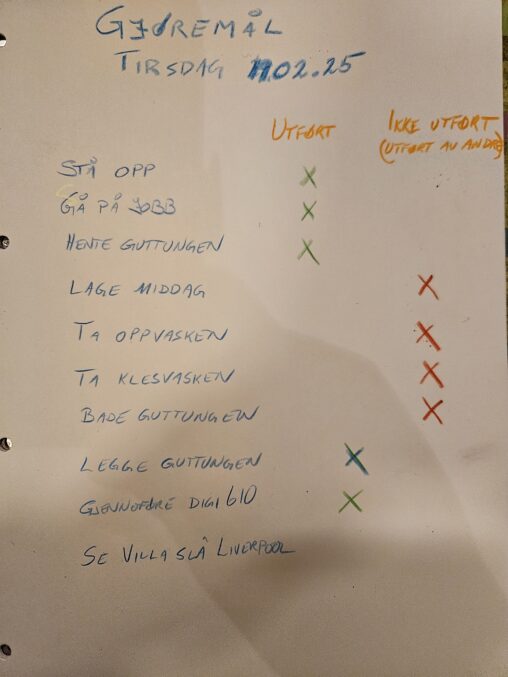 GJØREMÅL
TIRSDAG 11.02.25
UTFØRT
IKKE UTFØRT
(UTFØRT AV ANDRE)
STÅ OPP X
GÅ PÅ JOBB X
HENTE GUTTUNGEN X
LAGE MIDDAG X
TA OPPVASKEN X
TA KLESVASKEN X
BADE GUTTUNGEN X
LEGGE GUTTUNGEN X
GJENNOFØRE DIGI 610 X
SE VILLA SLÅ LIVERPOOL